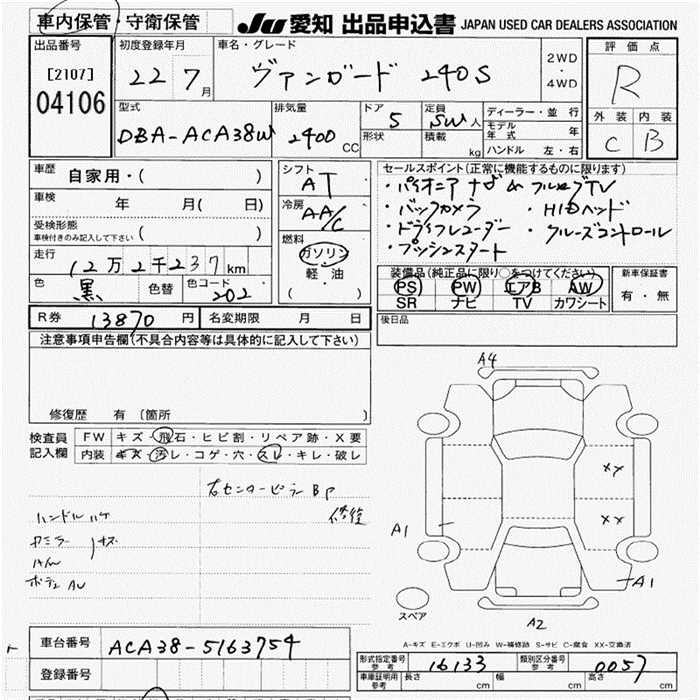 車内保管・守衛保管
JU 愛知 出品申込書 JAPAN USED CAR DEALERS ASSOCIATION
出品番号 [2107] 04106
初度登録年月 22 7月
車名・グレード ヴァンガード 240S
2WD・4WD
評価点 R
外装 C 内装 B
型式 DBA-ACA38W
排気量 2400 CC
ドア 5
形状
定員 5W人
積載 kg
ディーラー・並行
モデル年式 年
ハンドル 左・右
車歴 自家用・( )
車検 年 月( 日)
受検形態 車検付きのみ記入して下さい ( )
走行 12万2千237km
色 黒 色替 色コード 202
シフト AT
冷房 AA/C
燃料 ガソリン・軽・油 ( )
セールスポイント(正常に機能するものに限ります)
・パイオニアナビ ・フルセグTV
・バックカメラ ・HIDヘッド
・ドライブレコーダー ・クルーズコントロール
・プッシュスタート
装備品(純正品に限り○をつけてください)
PS PW エアB AW
SR ナビ TV カワシート
新車保証書 有・無
R券 13870 円 名変期限 月 日
後日品
注意事項申告欄(不具合内容等は具体的に記入して下さい)
修復歴 有 〔箇所 〕
検査員記入欄
FW キズ・飛石・ヒビ割・リペア跡・X要
内装 キズ・汚レ・コゲ・穴・スレ・キレ・破レ
右センターピラーBP
修復
ハンドル ハゲ
A4
XX
XX
A1
A1
A2
スペア
A-キズ E-エクボ U-凹み W-補修跡 S-サビ C-腐食 XX-交換済
車台番号 ACA38-5163754
登録番号
形式指定番号 参考 16133 類別区分番号 参考 0057
車庫証明用 参考 長さ cm 幅 cm 高さ cm